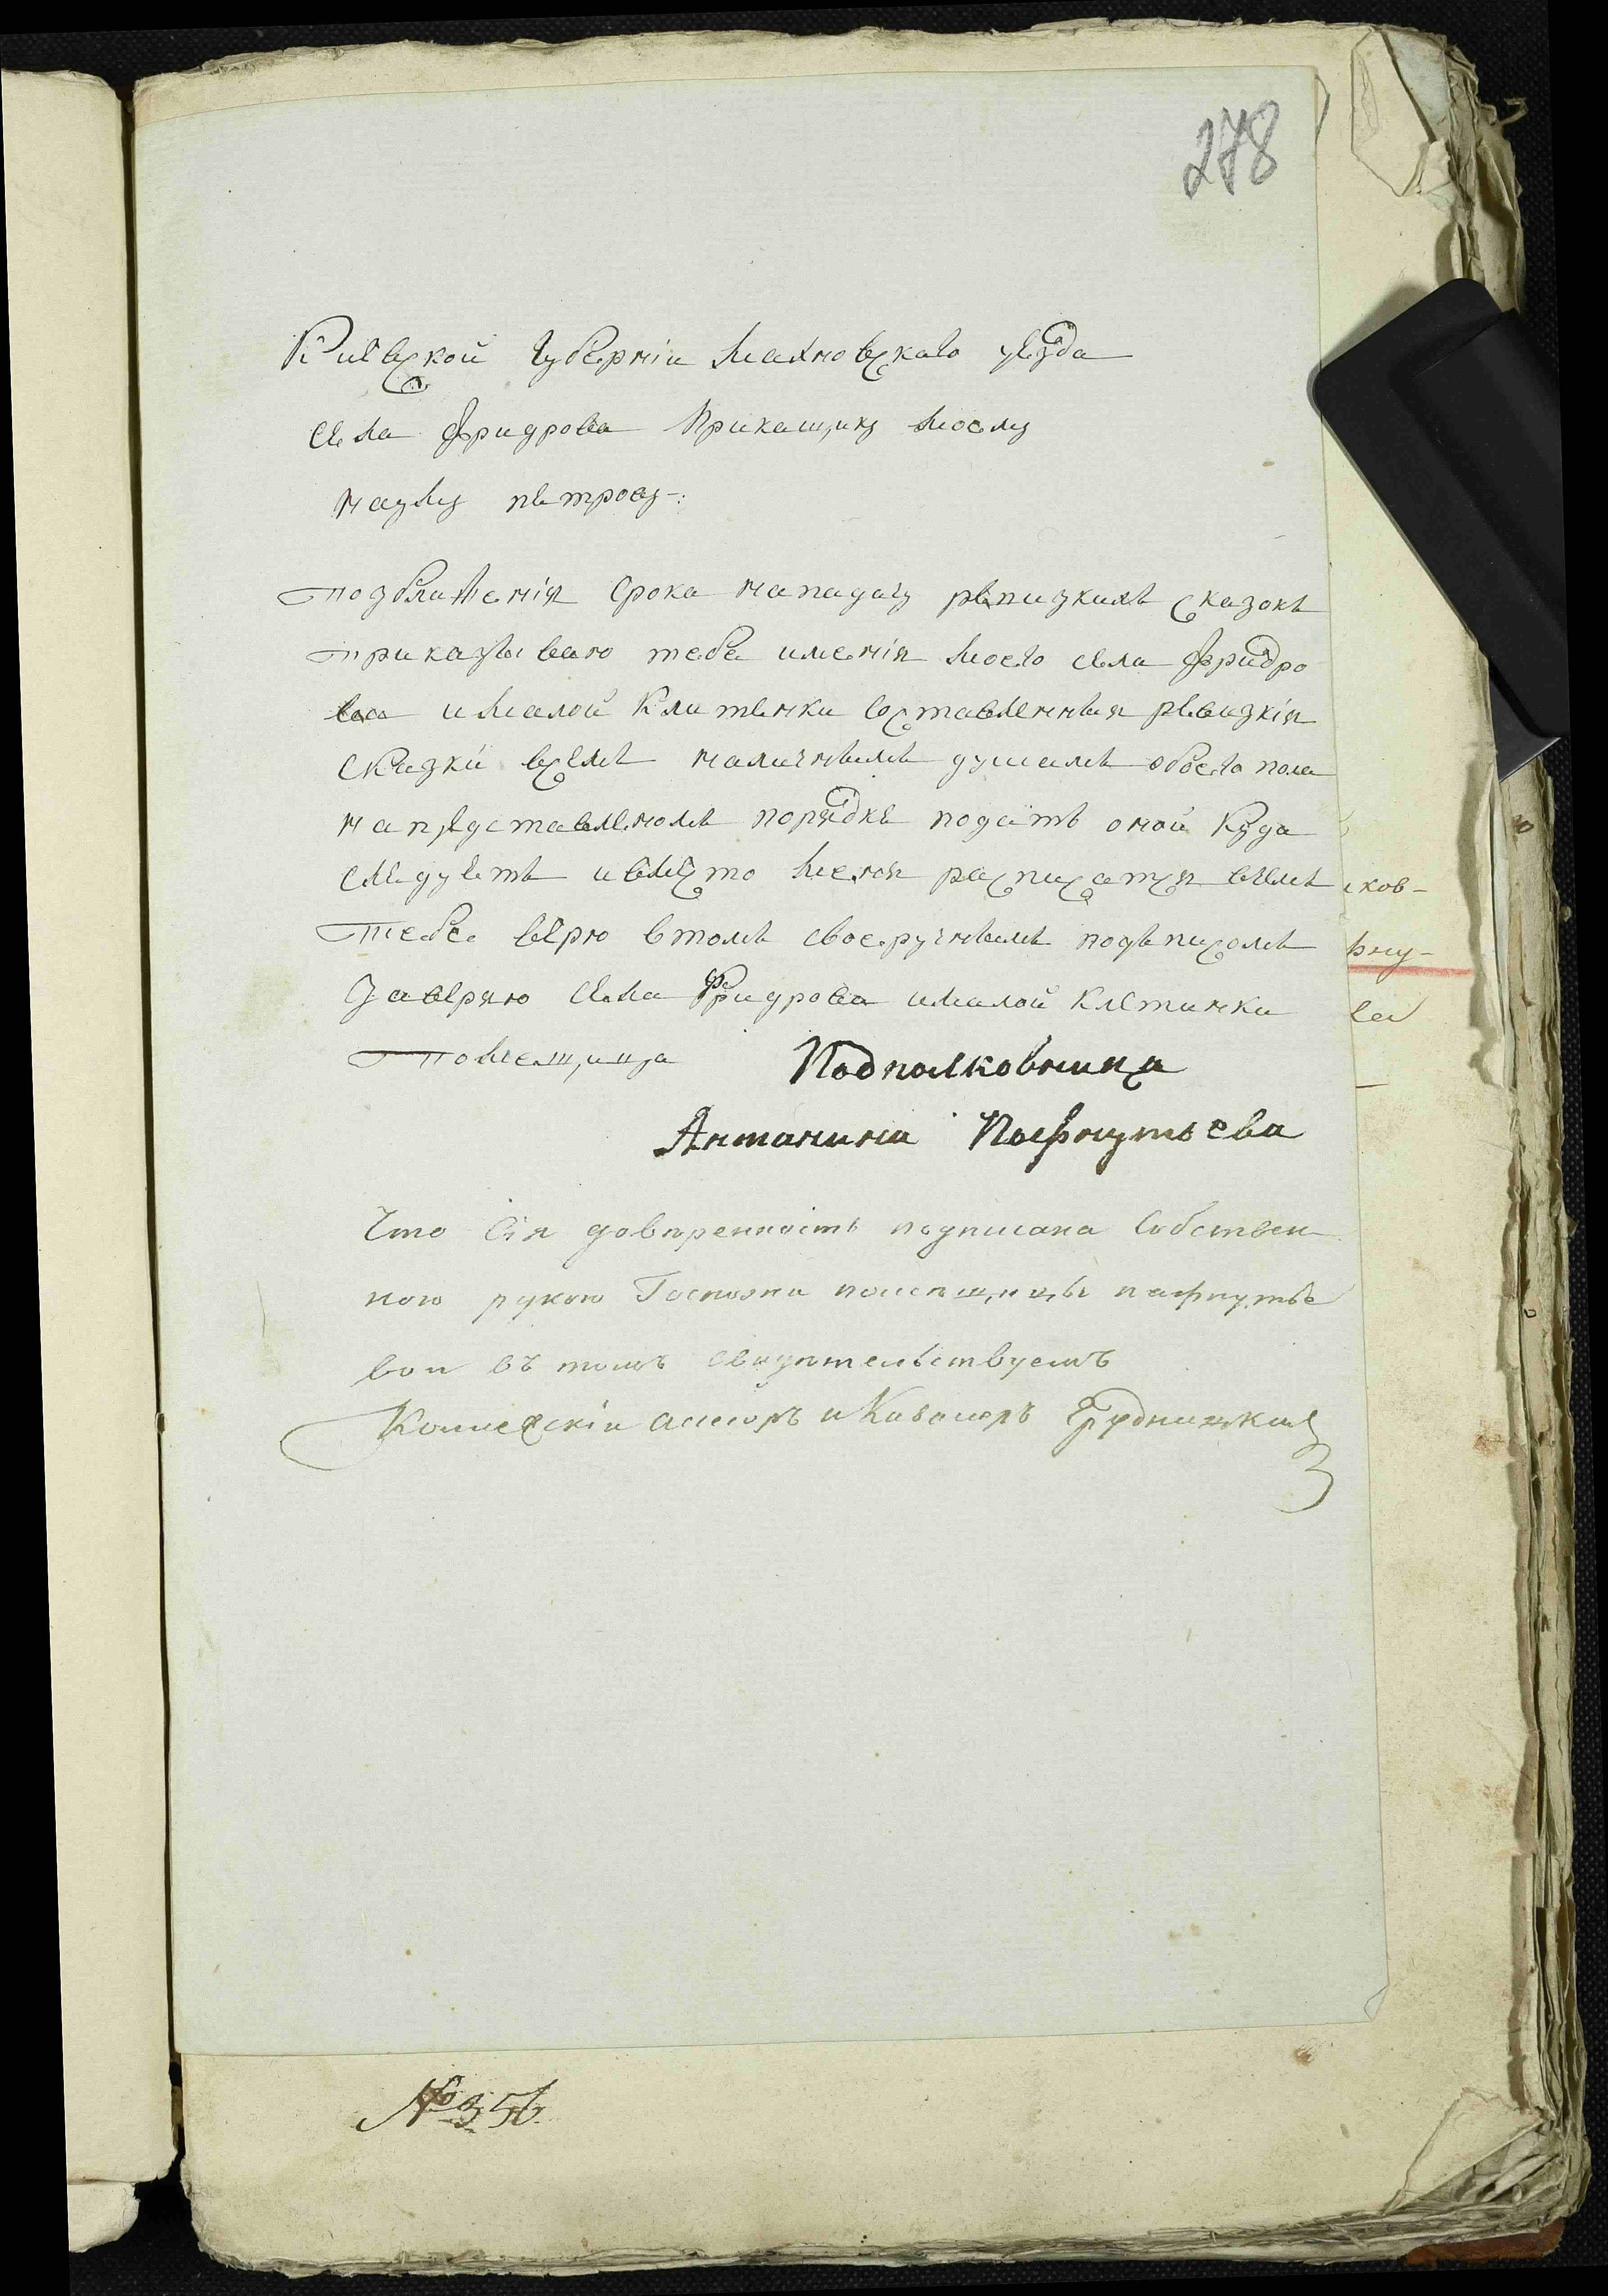 278
Киевской Губерніи Махновскаго уезда
села Фридрова Прикащику моему
науму петрову-:
позближенія срока наподачу ревизкихъ сказокъ
приказываю тебе имения моего села Фридро
ва ималой Клитенки составленныя ревизкія
сказки всемъ наличнымъ душамъ обоего пола
напредставленомъ порядке подать оной Куда
следуетъ ивместо меня росписатся внемъ
тебе верю втомъ своеручнымъ подъписомъ
заверяю села Фридрова ималой клетинки
помещица Подполковница
Антанина Пафнутьева
Что Сія доверенность подписана Собствен
ною рукою Госпожи помещицы пафнутье
вои въ томъ свидѣтельствуемъ
Коллежскіи Ассесоръ и Кавалеръ
ков-
фну-
ва
№ 356